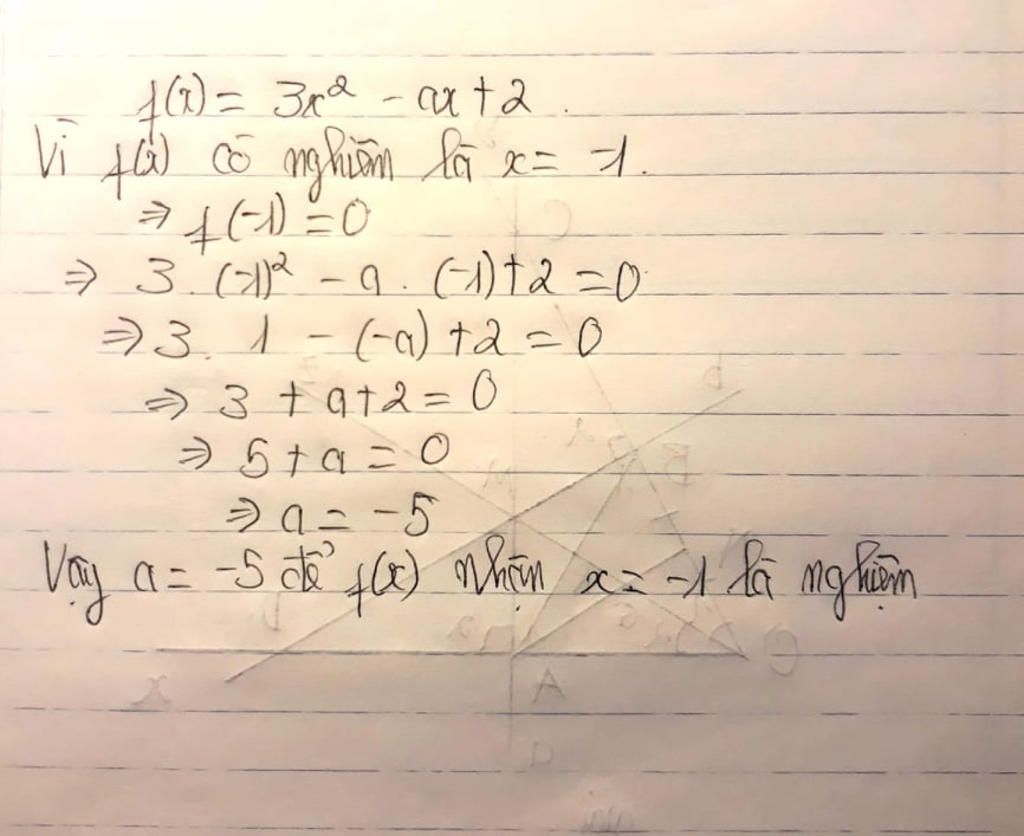 f(x) = 3x² - ax + 2.
Vì f(x) có nghiệm là x = -1.
⇒ f(-1) = 0
⇒ 3. (-1)² - a. (-1) + 2 = 0
⇒ 3. 1 - (-a) + 2 = 0
⇒ 3 + a + 2 = 0
⇒ 5 + a = 0
⇒ a = -5
Vậy a = -5 để f(x) nhận x = -1 là nghiệm